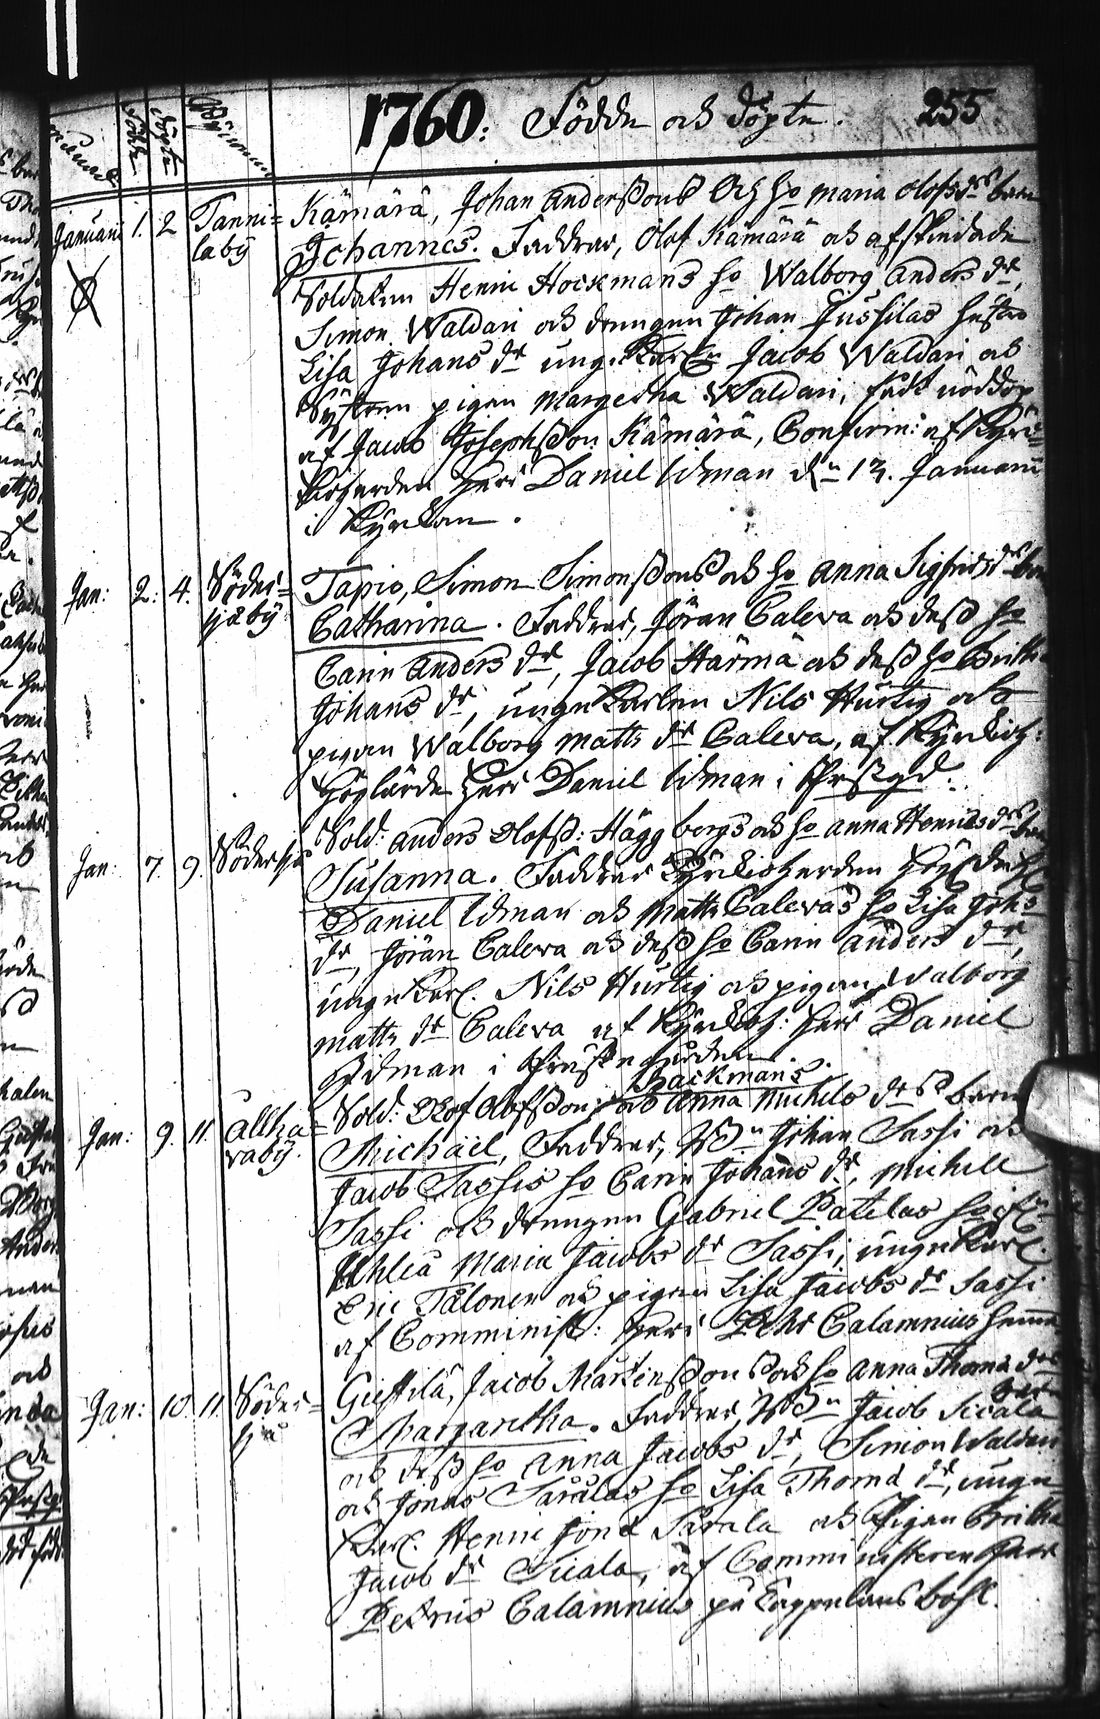 1760: Födde och döpte. 255
Månad. Födde Döpte Byarna
Januarii 1. 2 Tanni= Kämärä, Johan Anderssons Och ho Maria Olofs dr barn
laby Johannes. Faddrar, Olof Kämärä och afskedade
Soldaten Henric Hockmans ho Walborg Anders dr,
Simon Waldari och drengen Johan Jussilas hustro
Lisa Johans dr ungkarlen Jacob Waldari och
Systern pigan Margetha Waldari, fådt nöddop
af Jacob Josephsson Kämärä, Confirm: af Kyrc=
kioherden Herr Daniel Idman dn 13. Januarii
i Kyrkan.
Jan: 2. 4. Söder= Tapio, Simon Simonssons och ho Anna Sigfrids dr barn
sjåby Catharina. Faddrar, Jöran Caleva och dess ho
Carin Anders dr, Jacob Härmä och dess ho
Johans dr, ungkarlen Nils Hurtig och
pigan Walborg Matts dr Caleva, af Kyrkioh:
Höglärde Herr Daniel Idman i Prstgd.
Jan: 7. 9. Södersjå Sold: Anders Olofss: Häggbergs och ho Anna Henrics dr barn
Susanna. Faddrar Kyrkioherden
Daniel Idman och Matts Calevas ho Lisa Johs
dr, Jöran Caleva och dess ho Carin Anders dr,
ungkarl. Nils Hurtig och pigan Walborg
Matts dr Caleva af Kyrkioh: Herr Daniel
Idman i Prästegården.
Backmans
Jan: 9. 11. Allha= Sold: Olof Olofsson och Anna Michels dr barn
raby. Michäel, Faddrar, Johan Sassi och
Jacob Sassis ho Carin Johans dr, Michell
Sassi och drengen Gabriel Patelas
Maria Jacobs dr Sassi, ungkarl.
Eric Talonen och pigan Lisa Jacobs dr Sassi
af Comminist: Herr Pehr Calamnius hemma
Jan: 10. 11. Söder= Giettilä, Jacob Mårtenssons och ho Anna Thoma dr
sjå barn
Margaretha. Faddrar, Jacob Sicala
och dess ho Anna Jacobs dr, Simon Waldari
och Jonas Saralas ho Lisa Thoma dr, ung=
karl. Henric Jona Sarala och Pigan Britha
Jacob dr Sicala, af Comministeren Herr
Petrus Calamnius på Cappelansbohl.